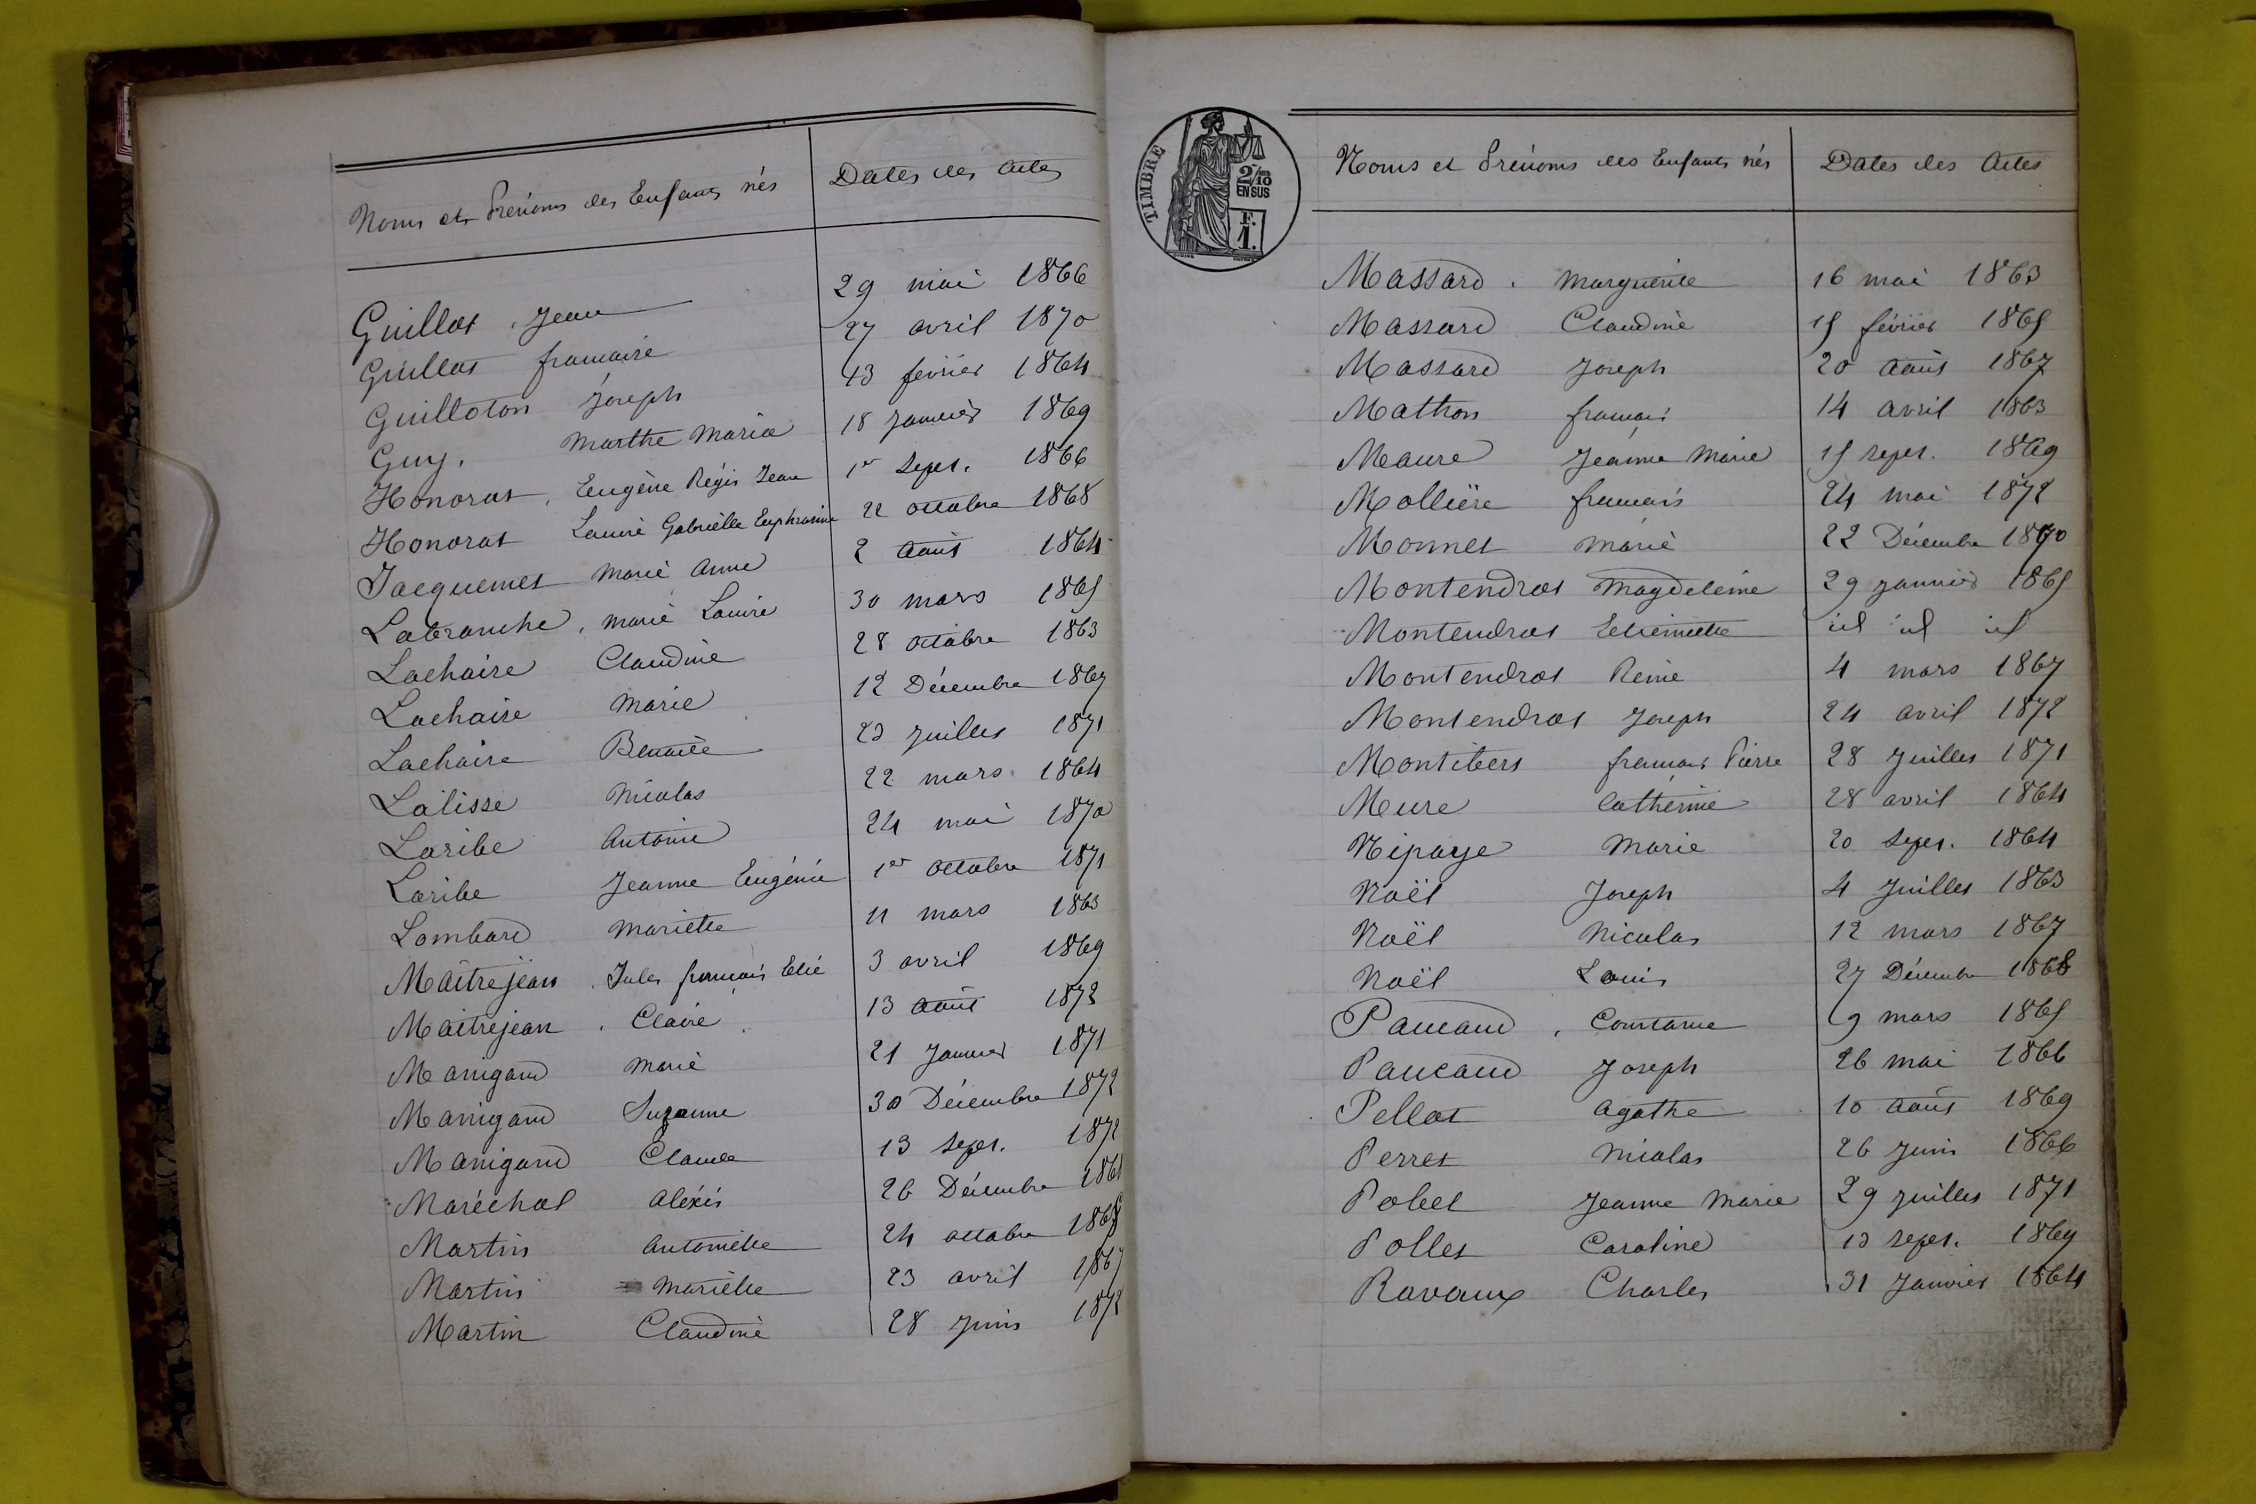 Noms et Prénoms des Enfants nés Dates des Actes
Guillot, Jean 29 mai 1866
Guillot françoise 27 avril 1870
Guilloton Joseph 13 février 1864
Guy, Marthe Maria 18 Janvier 1869
Honorat, Eugène Régis Jean 1er Sept. 1866
Honorat Laure Gabrielle Euphrasine 22 octobre 1868
Jacquemet Marie Anne 2 Août 1864
Labranche, Marie Laure 30 mars 1865
Lachaise Claudine 28 octobre 1863
Lachaise Marie 12 Décembre 1867
Lachaise Benoite 23 Juillet 1871
Lalisse Nicolas 22 mars 1864
Laribe Antoine 24 mai 1870
Laribe Jeanne Eugénie 1er octobre 1871
Lombard Mariette 11 mars 1863
Maîtrejean, Jules françois Elie 3 avril 1869
Maitrejean, Claire 13 août 1872
Manigand Marie 21 Janvier 1871
Manigand Suzanne 30 Décembre 1872
Manigand Claude 13 Sept. 1872
Maréchal Alexis 26 Décembre
Martin Antoinette 24 octobre
Martin Mariette 23 avril 1867
Martin Claudine 28 Juin 1872
TIMBRE
2/10
EN SUS
F.
1.
Noms et Prénoms des Enfants nés Dates des Actes
Massard. Marguerite 16 mai 1863
Massard Claudine 15 février 1865
Massard Joseph 20 août 1867
Mathon françois 14 avril 1863
Maure Jeanne Marie 15 sept. 1869
Mollière françois 24 mai 1872
Monnet Marie 22 Décembre 1870
Montendrat Magdeleine 29 Janvier 1865
Montendrat Etiennette id id id
Montendrat Reine 4 mars 1867
Montendrat Joseph 24 avril 1872
Montibert françois Pierre 28 Juillet 1871
Mure Catherine 28 avril 1864
Nipaye Marie 20 Sept. 1864
Noël Joseph 4 Juillet 1863
Noël Nicolas 12 mars 1867
Noël Louis 27 Décembre 1868
Paucaud, Constance 9 mars 1865
Paucaud Joseph 26 mai 1866
Pellat Agathe 10 août 1869
Perret Nicolas 26 Juin 1866
Pobel Jeanne Marie 29 Juillet 1871
Pollet Caroline 13 sept. 1869
Ravaux Charles 31 Janvier 1864